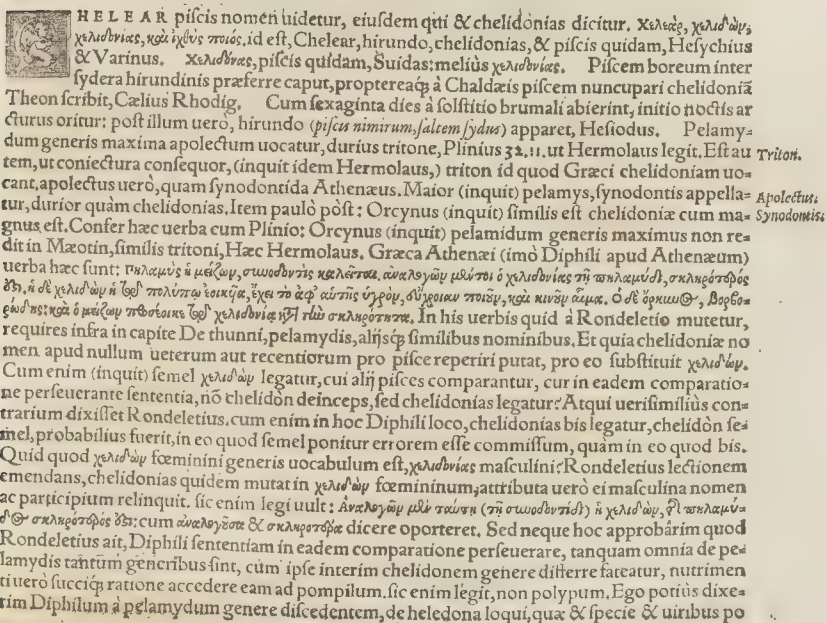 CHELEAR piscis nomen uidetur, eiusdem qui & chelidonias dicitur. Χελεὰρ, χελιδὼν,
χελιδονίας, καὶ ἰχθὺς ποιός. id est, Chelear, hirundo, chelidonias, & piscis quidam, Hesychius
& Varinus. Χελιδόνας, piscis quidam, Suidas: melius χελιδονίας. Piscem boreum inter
sydera hirundinis præferre caput, proptereaq́; à Chaldæis piscem nuncupari chelidoniã
Theon scribit, Cælius Rhodig. Cum sexaginta dies à solstitio brumali abierint, initio noctis ar
cturus oritur: post illum uero, hirundo (piscis nimirum, saltem sydus) apparet, Hesiodus. Pelamy-
dum generis maxima apolectum uocatur, durius tritone, Plinius 32.11. ut Hermolaus legit. Est au
Triton.
tem, ut coniectura consequor, (inquit idem Hermolaus,) triton id quod Græci chelidoniam uo-
cant, apolectus uerò, quam synodontida Athenæus. Maior (inquit) pelamys, synodontis appella-
Apolectus.
tur, durior quàm chelidonias. Item paulò pòst: Orcynus (inquit) similis est chelidoniæ cum ma-
Synodontis.
gnus est. Confer hæc uerba cum Plinio: Orcynus (inquit) pelamidum generis maximus non re-
dit in Mæotin, similis tritoni, Hæc Hermolaus. Græca Athenæi (imò Diphili apud Athenæum)
uerba hæc sunt: πηλαμὺς ἡ μείζων, συνοδοντὶς καλεῖται, ἀναλογῶν μέντοι ὁ χελιδονίας τῇ πηλαμύδι, σκληρότερός
ἐστι, ἡ δὲ χελιδὼν ἡ τῷ πολύπῳ ἐοικῆα, ἔχει τὸ ἀφ' αὑτῆς ὑγρὸν, εὔχροιαν ποιοῦν, καὶ κινοῦν αἷμα. Ὁ δὲ ὄρκυνος, βορβο-
ρώδης: καὶ ὁ μείζων προσέοικε τῷ χελιδονίᾳ κατὰ τὴν σκληρότητα. In his uerbis quid à Rondeletio mutetur,
requires infra in capite De thunni, pelamydis, alijsq́; similibus nominibus. Et quia chelidoniæ no
men apud nullum ueterum aut recentiorum pro pisce reperiri putat, pro eo substituit χελιδών.
Cum enim (inquit) semel χελιδὼν legatur, cui alij pisces comparantur, cur in eadem comparatio-
ne perseuerante sententia, nõ chelidòn deinceps, sed chelidonías legatur? Atqui uerisimiliùs con-
trarium dixisset Rondeletius. cum enim in hoc Diphili loco, chelidonías bis legatur, chelidòn se-
mel, probabilius fuerit, in eo quod semel ponitur errorem esse commissum, quàm in eo quod bis.
Quid quod χελιδὼν fœminini generis uocabulum est, χελιδονίας masculini? Rondeletius lectionem
emendans, chelidonías quidem mutat in χελιδὼν fœmininum, attributa uerò ei masculina nomen
ac participium relinquit. sic enim legi uult: Ἀναλογῶν μὲν ταύτῃ (τῇ συνοδοντίδι) ἡ χελιδὼν, τῆς πηλαμύ-
δος σκληρότερός ἐστι: cum ἀναλογοῦσα & σκληροτέρα dicere oporteret. Sed neque hoc approbârim quod
Rondeletius ait, Diphili sententiam in eadem comparatione perseuerare, tanquam omnia de pe-
lamydis tantùm generibus sint, cùm ipse interim chelidonem genere differre fateatur, nutrimen
ti uerò succiq́; ratione accedere eam ad pompilum. sic enim legit, non polypum. Ego potiùs dixe-
rim Diphilum à pelamydum genere discedentem, de heledona loqui, quæ & specie & uiribus po